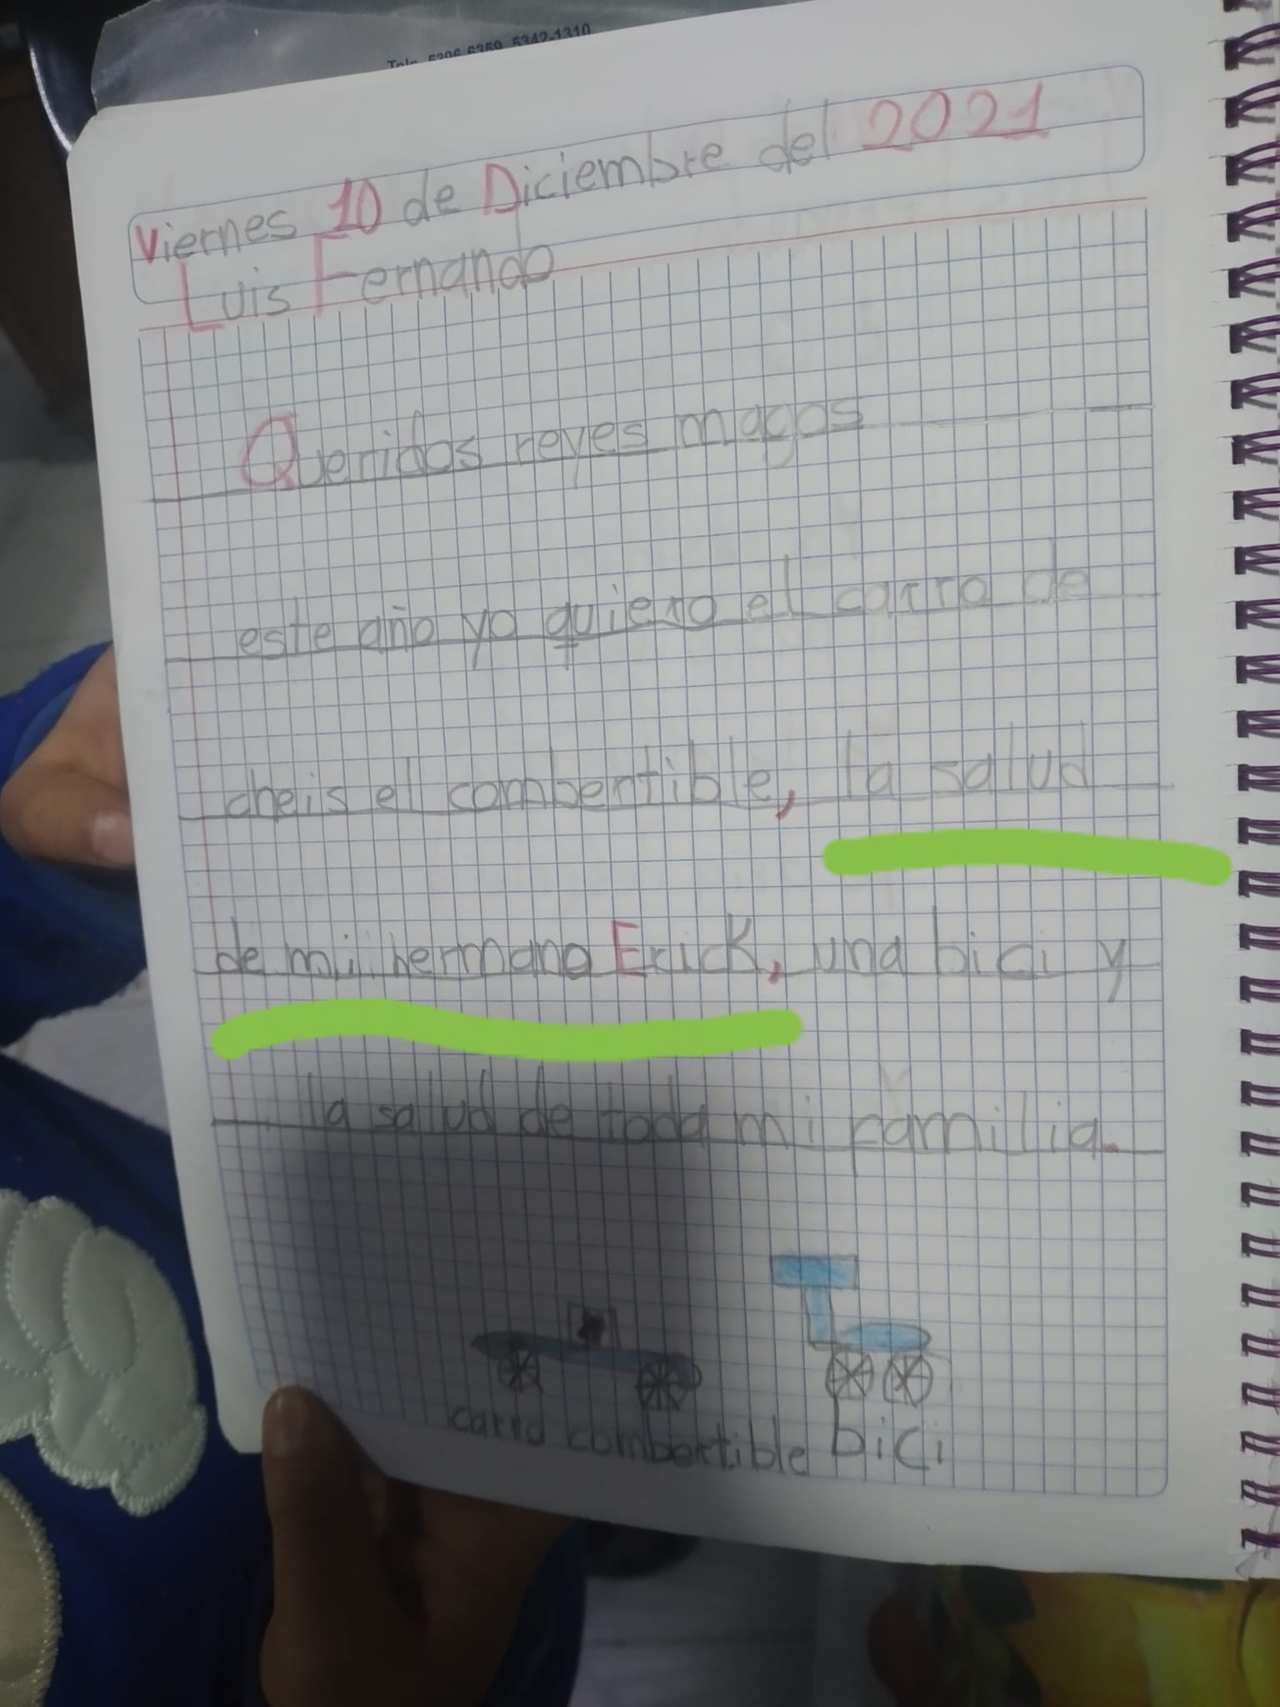 Tels. 5396-6359, 5342-1310
Viernes 10 de Diciembre del 2021
Luis Fernando
Queridos reyes magos
este año yo quiero el carro de
cheis el combertible, la salud
de mi hermano Erick, una bici y
la salud de toda mi familia.
carro combertible bici